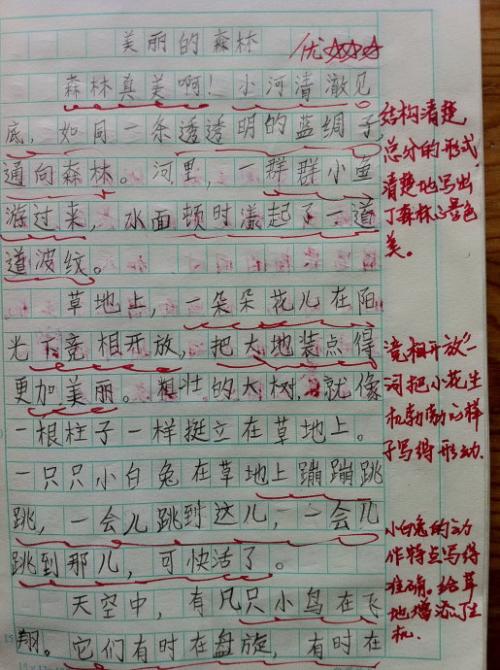 美丽的森林
优☆☆☆
森林真美啊！小河清澈见
底，如同一条透透明的蓝绸子，
通向森林。河里，一群群小鱼
游过来，水面顿时漾起了一道
道波纹。
草地上，一朵朵花儿在阳
光下竞相开放，把大地装点得
更加美丽。粗壮的大树，就像
一根柱子一样挺立在草地上。
一只只小白兔在草地上蹦蹦跳
跳，一会儿跳到这儿，一会儿
跳到那儿，可快活了。
天空中，有几只小鸟在飞
翔。它们有时在盘旋，有时在
结构清楚
总分的形式，
清楚地写出
了森林的景色
美。
"竞相开放"一
词把小花生
机勃勃的样
子写得形动。
小白兔的动
作特点写得
准确。给草
地增添了生
机。